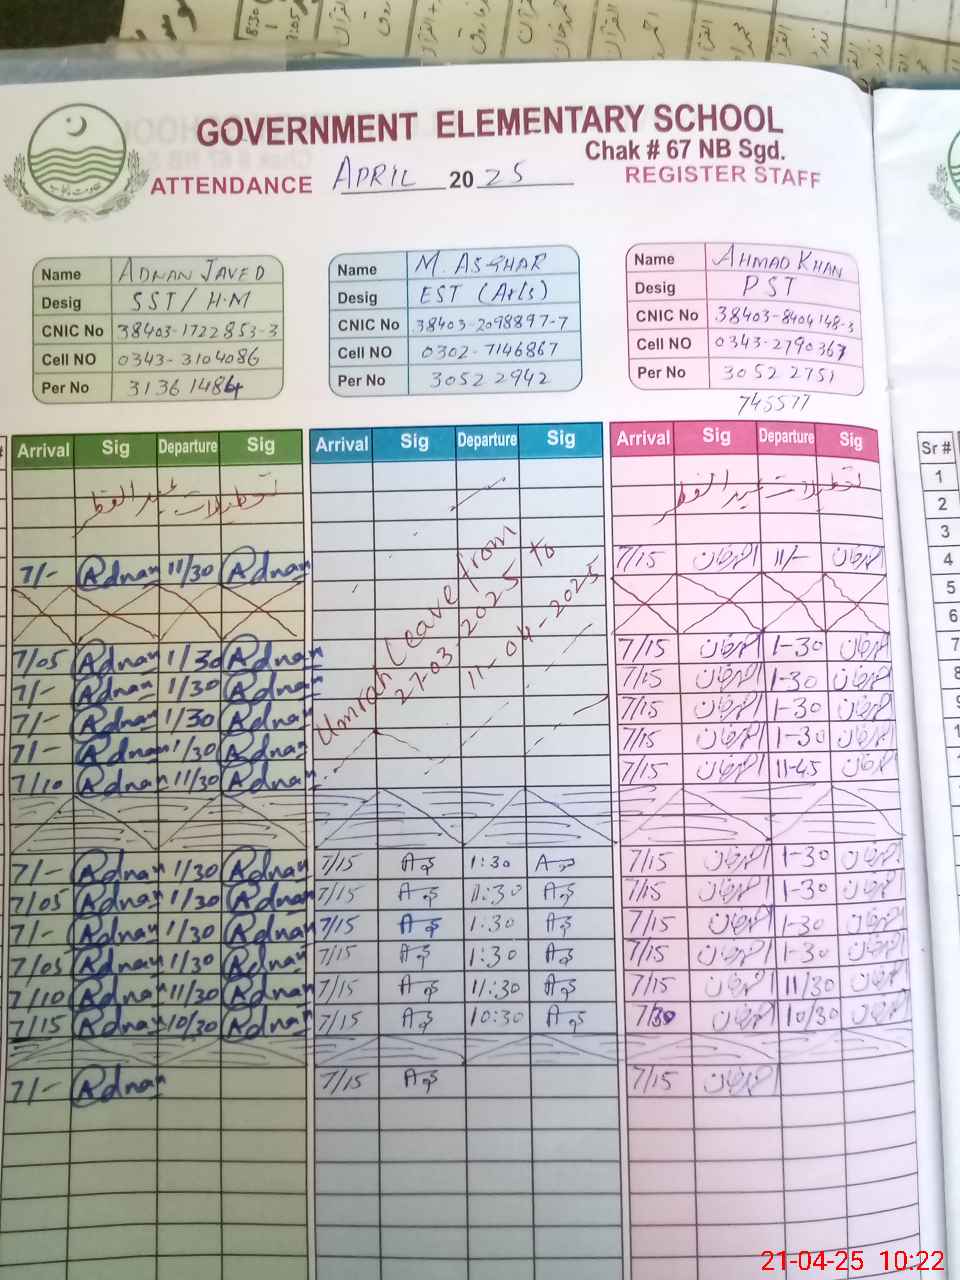 GOVERNMENT ELEMENTARY SCHOOL
Chak # 67 NB Sgd.
ATTENDANCE APRIL 2025 REGISTER STAFF
Name ADNAN JAVED
Desig SST/H.M
CNIC No 38403-1722853-3
Cell NO 0343-3104086
Per No 31361484
Name M. ASGHAR
Desig EST (Arts)
CNIC No 38403-2098897-7
Cell NO 0302-7146867
Per No 30522942
Name AHMAD KHAN
Desig PST
CNIC No 38403-8404148-3
Cell NO 0343-2790367
Per No 30522751
745577
Arrival Sig Departure Sig Arrival Sig Departure Sig Arrival Sig Departure Sig Sr #
تعطیلات عید الفطر تعطیلات عید الفطر
1
2
3
7/- Adnan 11/30 Adnan 7/15 احمد خان 11/- احمد خان 4
5
6
Umrah Leave from
27-03-2025 to
11-04-2025
7/05 Adnan 1/30 Adnan 7/15 احمد خان 1-30 احمد خان 7
7/- Adnan 1/30 Adnan 7/15 احمد خان 1-30 احمد خان 8
7/- Adnan 1/30 Adnan 7/15 احمد خان 1-30 احمد خان 9
7/- Adnan 1/30 Adnan 7/15 احمد خان 1-30 احمد خان
7/10 Adnan 11/30 Adnan 7/15 احمد خان 11-45 احمد خان
7/- Adnan 1/30 Adnan 7/15 1:30 7/15 احمد خان 1-30 احمد خان
7/05 Adnan 1/30 Adnan 7/15 1:30 7/15 احمد خان 1-30 احمد خان
7/- Adnan 1/30 Adnan 7/15 1:30 7/15 احمد خان 1-30 احمد خان
7/05 Adnan 1/30 Adnan 7/15 1:30 7/15 احمد خان 1-30 احمد خان
7/10 Adnan 11/30 Adnan 7/15 11:30 7/15 احمد خان 11/30 احمد خان
7/15 Adnan 10/30 Adnan 7/15 10:30 7/30 احمد خان 10/30 احمد خان
7/- Adnan 7/15 7/15 احمد خان
21-04-25 10:22